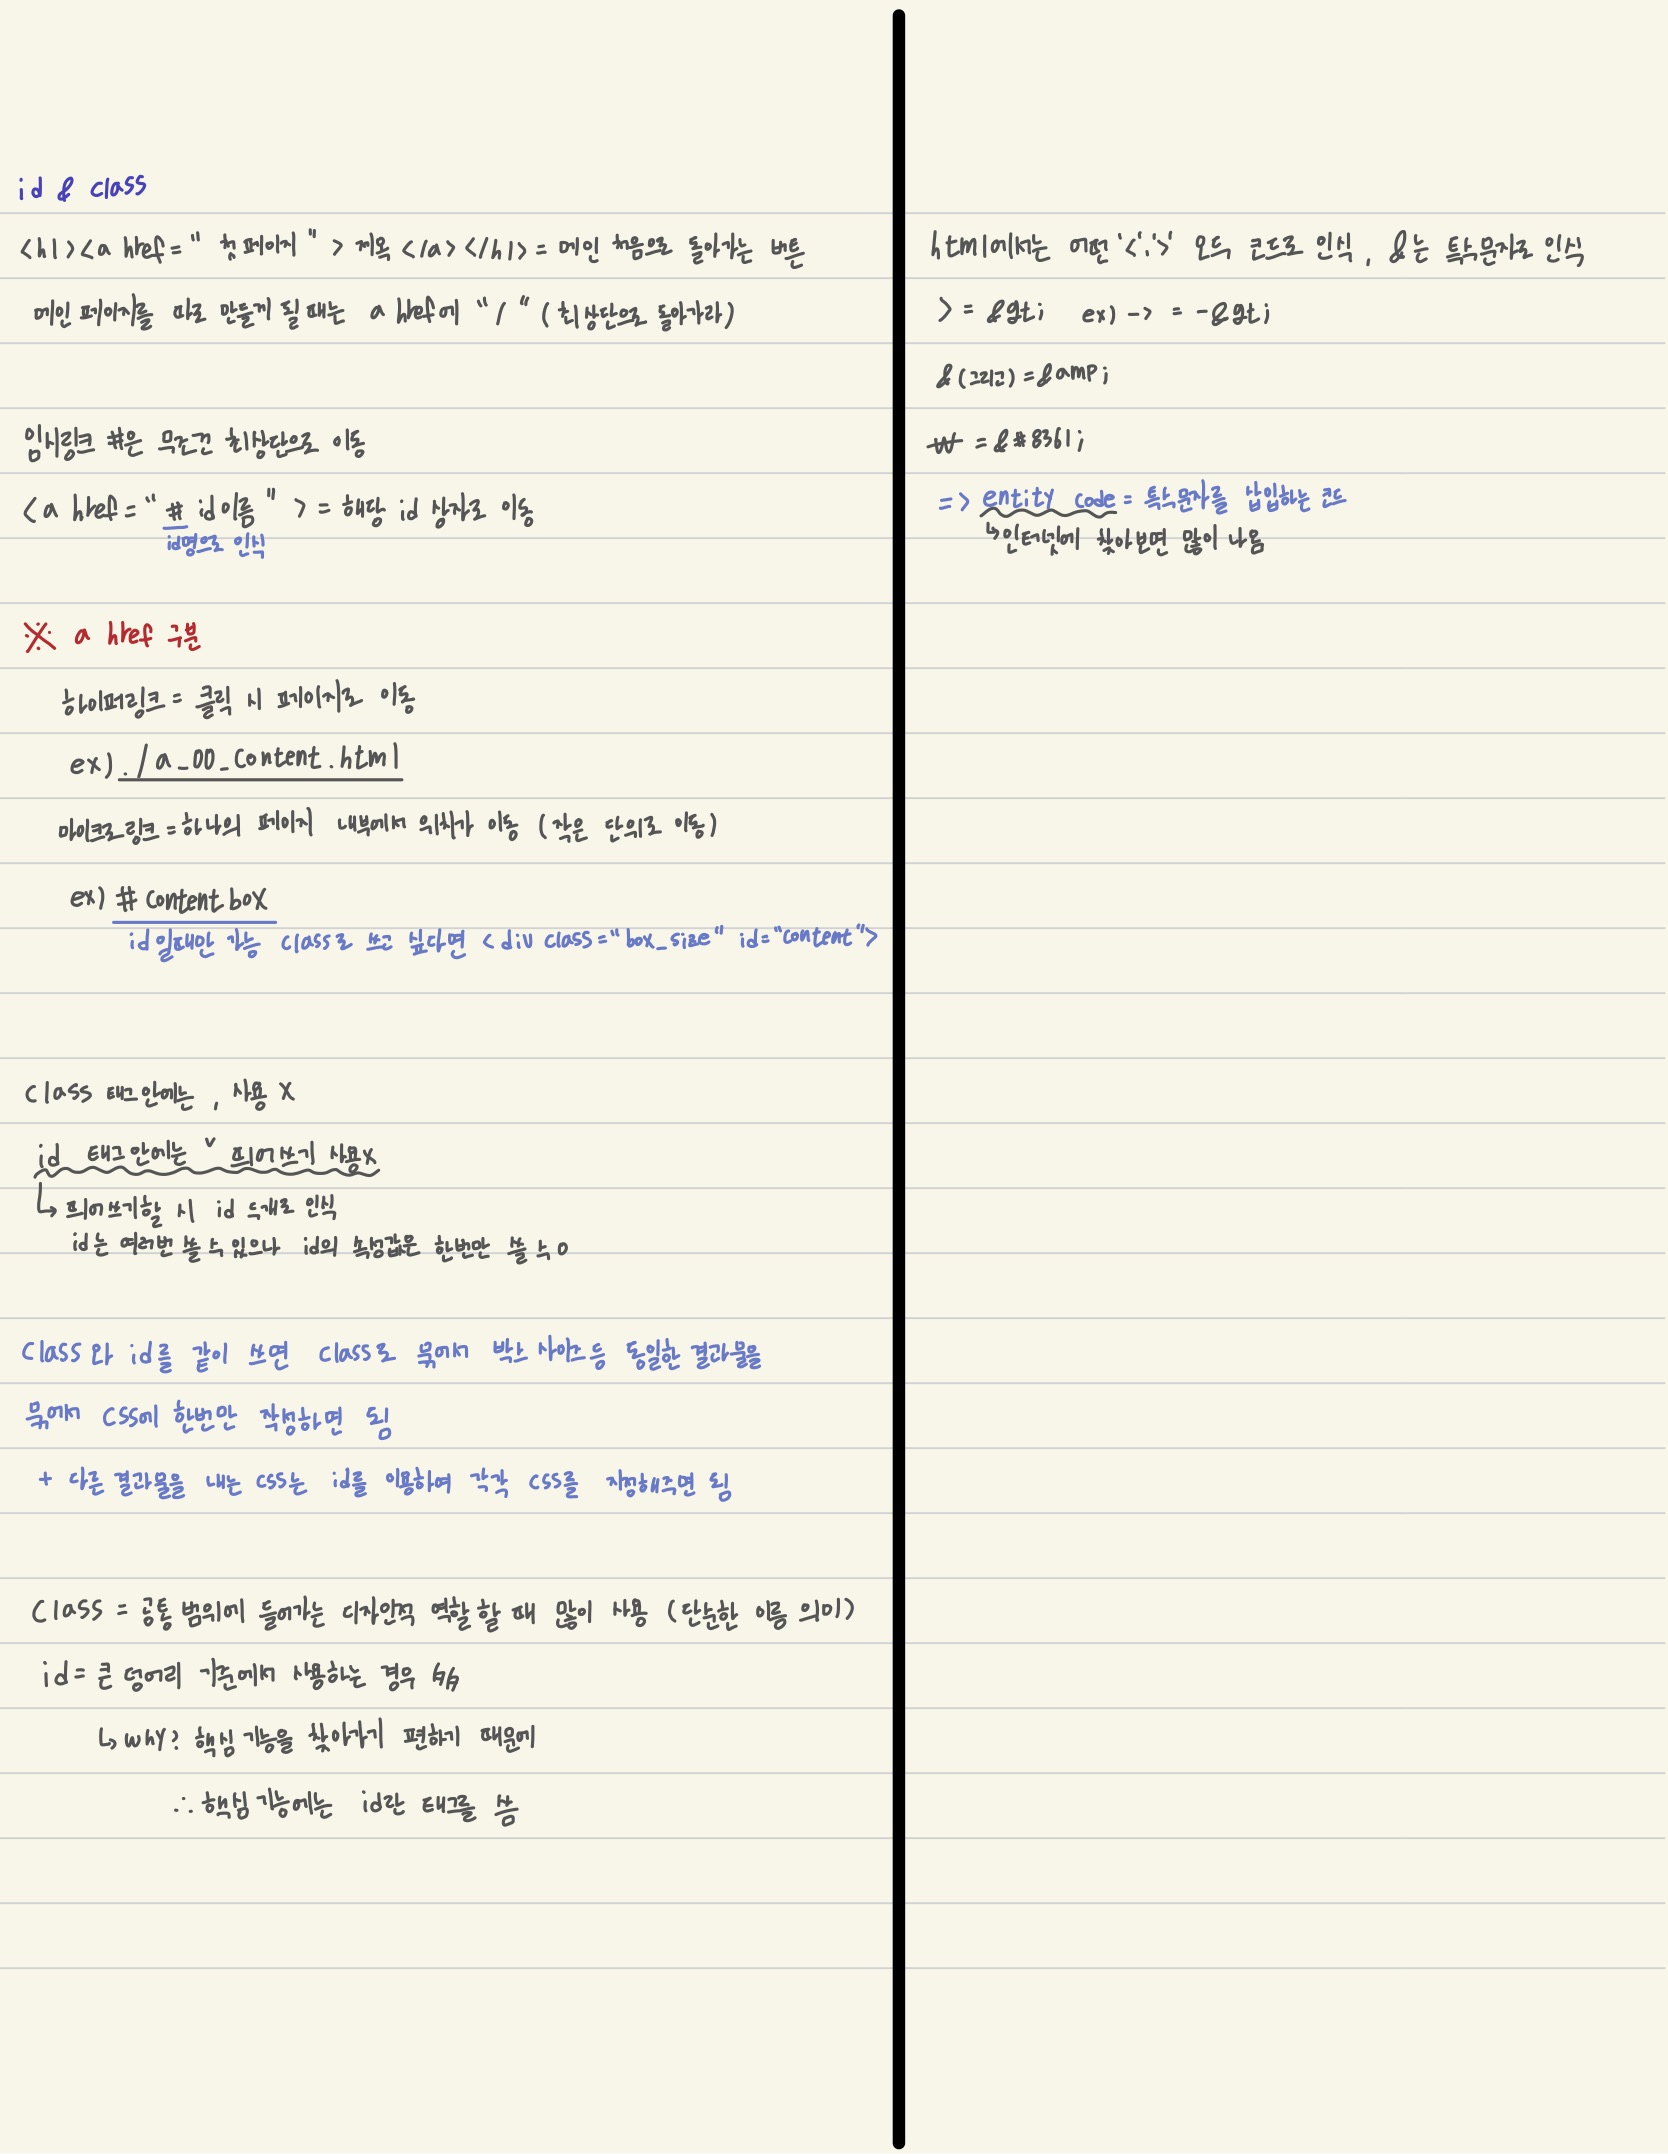 id & class
<h1><a href="첫페이지"> 제목 </a></h1> = 메인 처음으로 돌아가는 버튼
메인 페이지를 따로 만들게 될 때는 a href에 "/" (최상단으로 돌아가라)
임시링크 #은 무조건 최상단으로 이동
<a href="# id이름"> = 해당 id 상자로 이동
id명으로 인식
※ a href 구분
하이퍼링크 = 클릭 시 페이지로 이동
ex) ./a_00_content.html
마이크로링크 = 하나의 페이지 내부에서 위치가 이동 (작은 단위로 이동)
ex) # contentbox
id일때만 가능 class로 쓰고 싶다면 <div class="box_size" id="content">
class 태그안에는 , 사용 X
id 태그안에는 ˅ 띄어쓰기 사용X
↳ 띄어쓰기할 시 id 두개로 인식
id는 여러번 쓸 수 있으나 id의 속성값은 한번만 쓸 수 0
class와 id를 같이 쓰면 class로 묶어서 박스 사이즈 등 동일한 결과물을
묶어서 css에 한번만 작성하면 됨
+ 다른 결과물을 내는 css는 id를 이용하여 각각 css를 지정해주면 됨
class = 공통 범위에 들어가는 디자인적 역할 할 때 많이 사용 (단순한 이름 의미)
id = 큰 덩어리 기준에서 사용하는 경우
↳ why? 핵심 기능을 찾아가기 편하기 때문에
∴ 핵심 기능에는 id란 태그를 씀
html에서는 어떤 '<','>' 모두 코드로 인식, &는 특수문자로 인식
> = &gt; ex) -> = -&gt;
&(그리고) = &amp;
₩ = &#8361;
=> entity code = 특수문자를 삽입하는 코드
↳ 인터넷에 찾아보면 많이 나옴